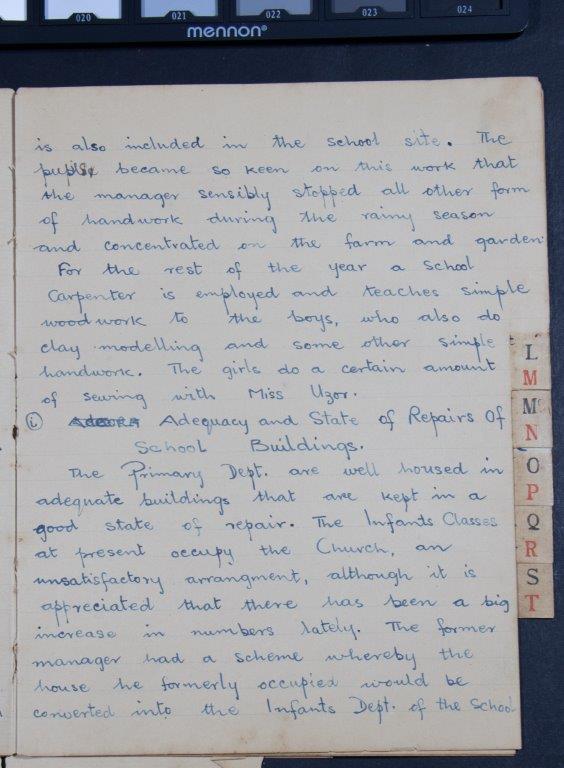 020 021 022 023 024
mennon®
is also included in the school site. The
pupils became so keen on this work that
the manager sensibly stopped all other form
of handwork during the rainy season
and concentrated on the farm and garden.
For the rest of the year a School
Carpenter is employed and teaches simple
woodwork to the boys, who also do
clay modelling and some other simple
handwork. The girls do a certain amount
of sewing with Miss Uzor.
(i) Adequacy and State of Repairs Of
School Buildings.
The Primary Dept. are well housed in
adequate buildings that are kept in a
good state of repair. The Infants Classes
at present occupy the Church, an
unsatisfactory arrangment, although it is
appreciated that there has been a big
increase in numbers lately. The former
manager had a scheme whereby the
house he formerly occupied would be
converted into the Infants Dept. of the School
L
M
Mc
N
O
P
Q
R
S
T